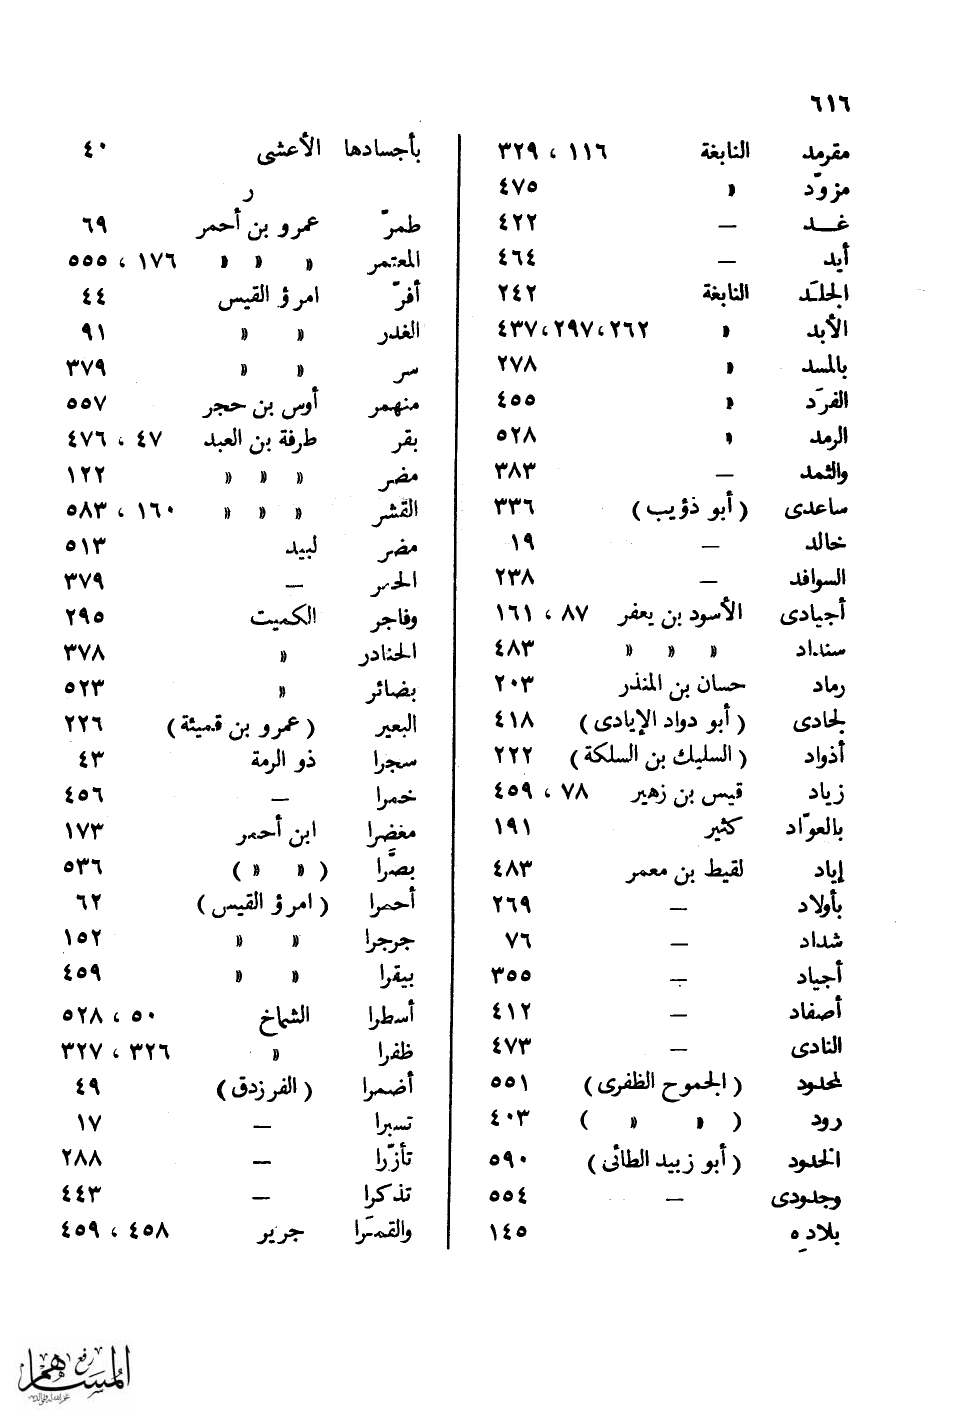 ٦١٦
مقرمد النابغة ١١٦ ، ٣٢٩
مزوّد » ٤٧٥
غـــد — ٤٢٢
أيد — ٤٦٤
الجلَد النابغة ٢٤٢
الأبد » ٢٦٢،٢٩٧،٤٣٧
بالمسد » ٢٧٨
الفرَد » ٤٥٥
الرمد » ٥٢٨
والثمد — ٣٨٣
ساعدى ( أبو ذؤيب ) ٣٣٦
خالد — ١٩
السوافد — ٢٣٨
أجيادى الأسود بن يعفر ٨٧ ، ١٦١
سنداد » » » ٤٨٣
رماد حسان بن المنذر ٢٠٣
لجادى ( أبو دواد الإيادى ) ٤١٨
أذواد ( السليك بن السلكة ) ٢٢٢
زياد قيس بن زهير ٧٨ ، ٤٥٩
بالعوّاد كثير ١٩١
إياد لقيط بن معمر ٤٨٣
بأولاد — ٢٦٩
شداد — ٧٦
أجياد — ٣٥٥
أصفاد — ٤١٢
النادى — ٤٧٣
لمحدود ( الجموح الظفرى ) ٥٥١
رود ( » » ) ٤٠٣
الخدود ( أبو زبيد الطائى ) ٥٩٠
وجدودى — ٥٥٤
بلادِه ١٤٥
بأجسادها الأعشى ٤٠
ر
طمرّ عمرو بن أحمر ٦٩
المعتمر » » » ١٧٦ ، ٥٥٥
أفرّ امرؤ القيس ٤٤
الغدر » » ٩١
سر » » ٣٧٩
منهمر أوس بن حجر ٥٥٧
بقر طرفة بن العبد ٤٧ ، ٤٧٦
مضر » » » ١٢٢
القشر » » » ١٦٠ ، ٥٨٣
مضر لبيد ٥١٣
— ٣٧٩
وفاجر الكميت ٢٩٥
الحنادر » ٣٧٨
بضائر » ٥٢٣
البعير ( عمرو بن قميئة ) ٢٢٦
سجرا ذو الرمة ٤٣
خمرا — ٤٥٦
مغضرا ابن أحمر ١٧٣
بصَّرا ( » » ) ٥٣٦
أحمرا ( امرؤ القيس ) ٦٢
جرجرا » » ١٥٢
بيقرا » » ٤٥٩
أسطرا الشماخ ٥٠ ، ٥٢٨
ظفرا » ٣٢٦ ، ٣٢٧
أضمرا ( الفرزدق ) ٤٩
تسبرا — ١٧
تأزّرا — ٢٨٨
تذكرا — ٤٤٣
والقمَرا جرير ٤٥٨ ، ٤٥٩
رفع
المساهم